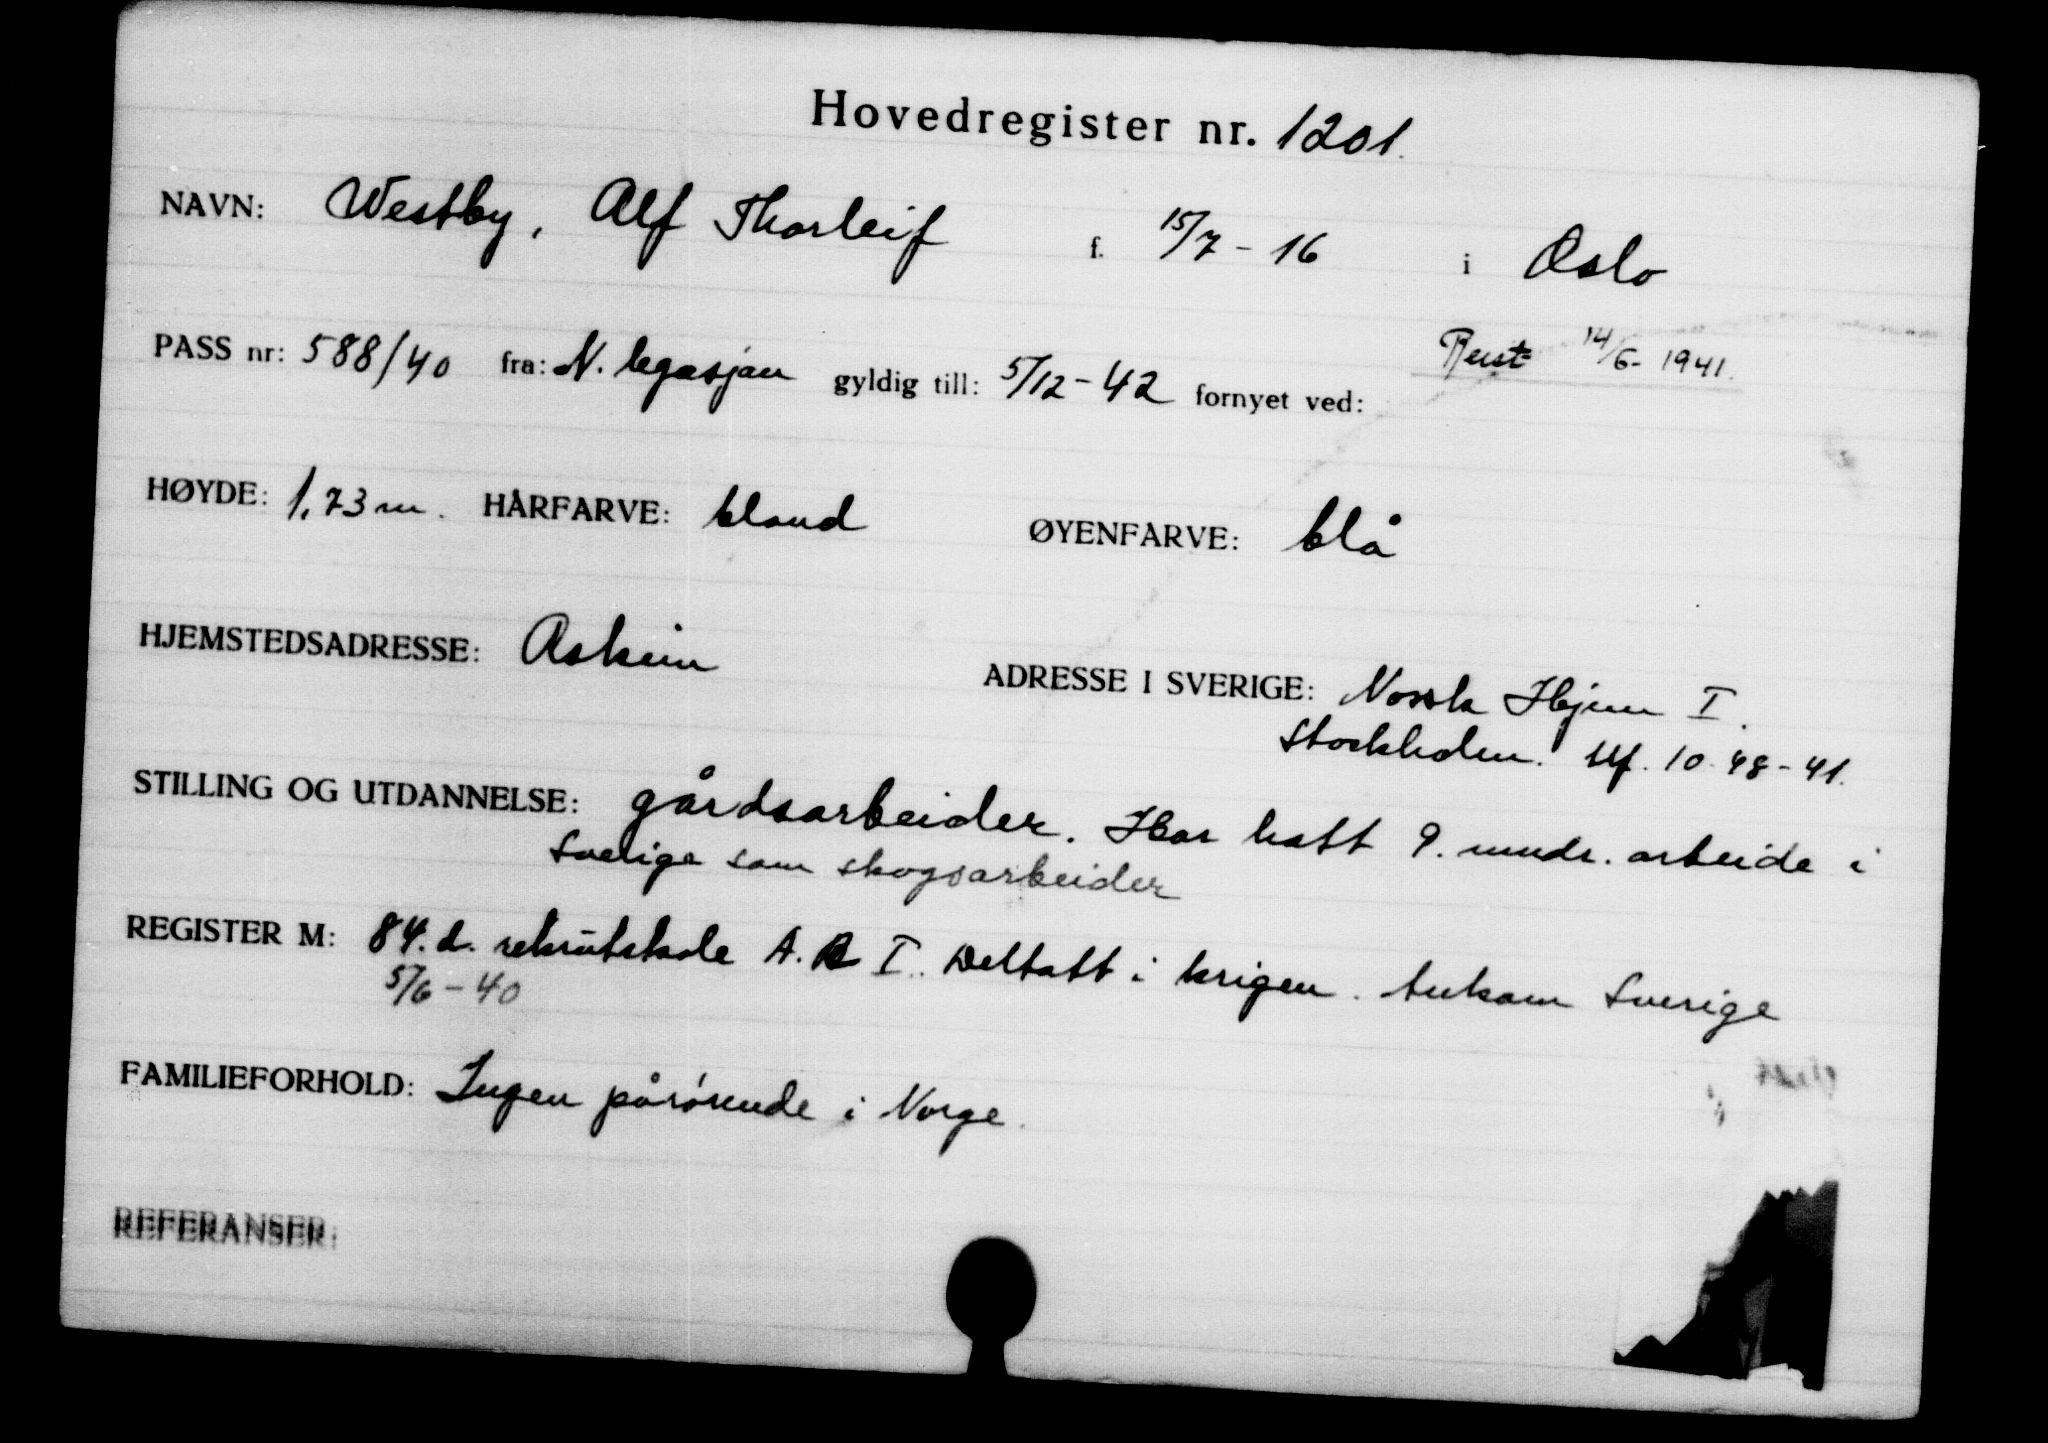 Hovedregister nr. 1201.
NAVN: Westby, Alf Thorleif f. 15/7 - 16 i Oslo
Rest 14/6 - 1941.
PASS nr: 588/40 fra: N. legasjon gyldig till: 5/12 - 42 fornyet ved:
HØYDE: 1,73 m. HÅRFARVE: blond ØYENFARVE: blå
HJEMSTEDSADRESSE: Askim
ADRESSE I SVERIGE: Norsk Hjem I.
Stockholm. tlf. 10-48-41.
STILLING OG UTDANNELSE: gårdsarbeider. Har hatt 9. mndr. arbeide i
Sverige som skogsarbeider
REGISTER M: 84. d. rekrutskole A.R I. Deltatt i krigen. Ankom Sverige
5/6 - 40
FAMILIEFORHOLD: Ingen pårørende i Norge.
REFERANSER: